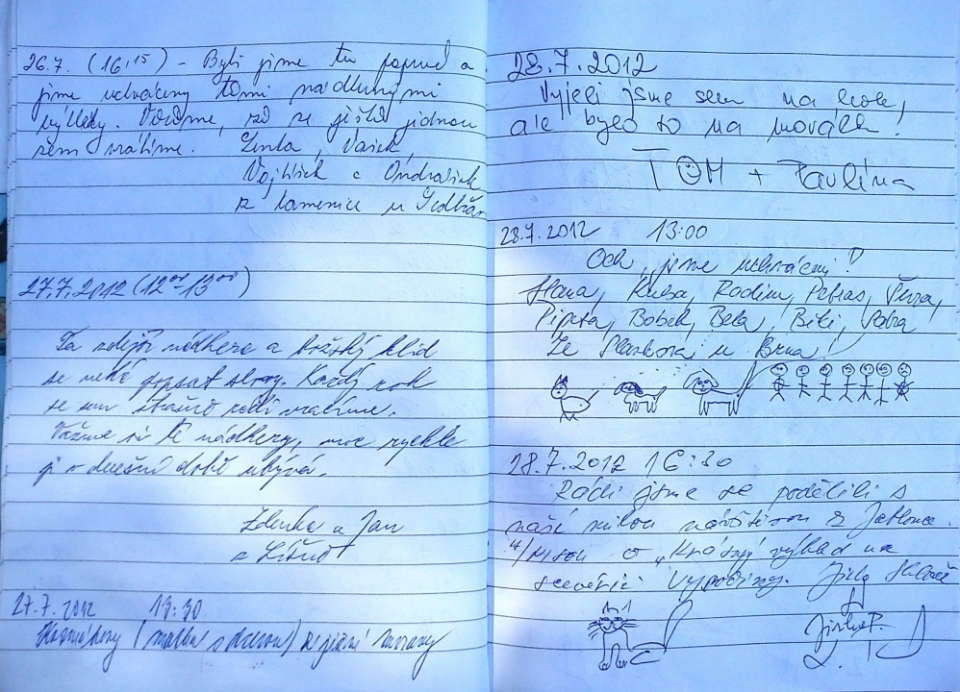 26.7. (16,15) - Byli jsme tu poprvé a
jsme uchváceny těmi nádhernými
výhledy. Věříme, že se ještě jednou
sem vrátíme. Lenka, Vašek,
Vojtíšek a Ondrášek
z Kamenice u
27.7.2012 (12⁰⁰-13⁰⁰)
Ta zdejší nádhera a božský klid
se nedá popsat slovy. Každý rok
se sem strašně rádi vracíme.
Važme si té nádhery, moc rychle
jí v dnešní době ubývá.
Zdenka a Jan
z
27.7.2012 13:30
(matka s dcerou) ze jižní Moravy
28.7.2012
Vyjeli jsme sem na kole,
ale bylo to na morálku!
TOM + Pavlína
28.7.2012 13:00
Och, jsme uchváceni!
Hana, Kuba, Radim, Petras,
Pipeta, Bobek, Bela, Biki,
Ze Slavkova u Brna!
28.7.2012 16:30
Rádi jsme se podělili s
naší milou návštěvou z Jablonce
n/Nisou o „Krásný" výhled na
scenérii